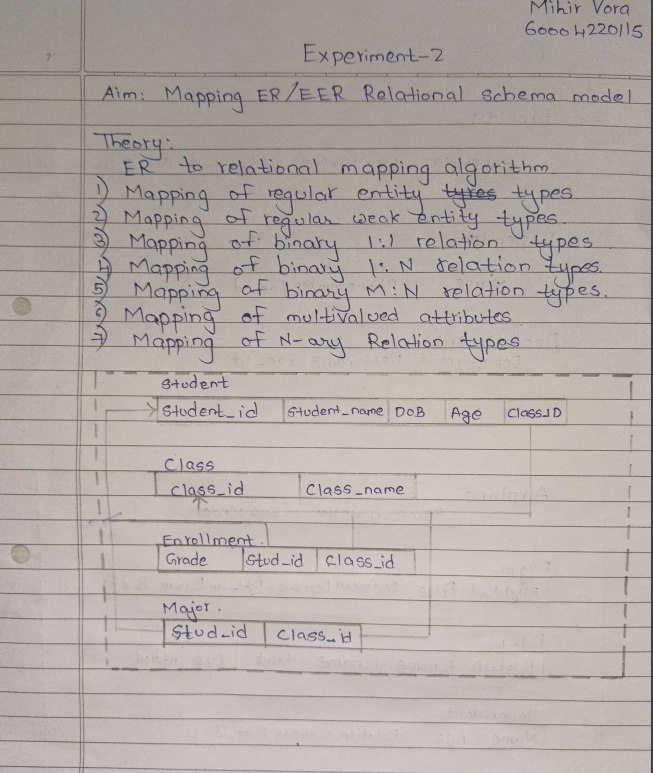 Mihir Vora
60004220115
Experiment-2
Aim: Mapping ER/EER Relational Schema model
Theory:
ER to relational mapping algorithm
1) Mapping of regular entity tyres types
2) Mapping of regular weak entity types.
3) Mapping of binary 1:1 relation types
4) Mapping of binary 1:N relation types.
5) Mapping of binary M:N relation types.
6) Mapping of multivalued attributes
7) Mapping of N-ary Relation types
Student
Student_id Student_name DOB Age Class_ID
Class
class_id Class_name
Enrollment.
Grade Stud_id Class_id
Major.
Stud_id Class_id